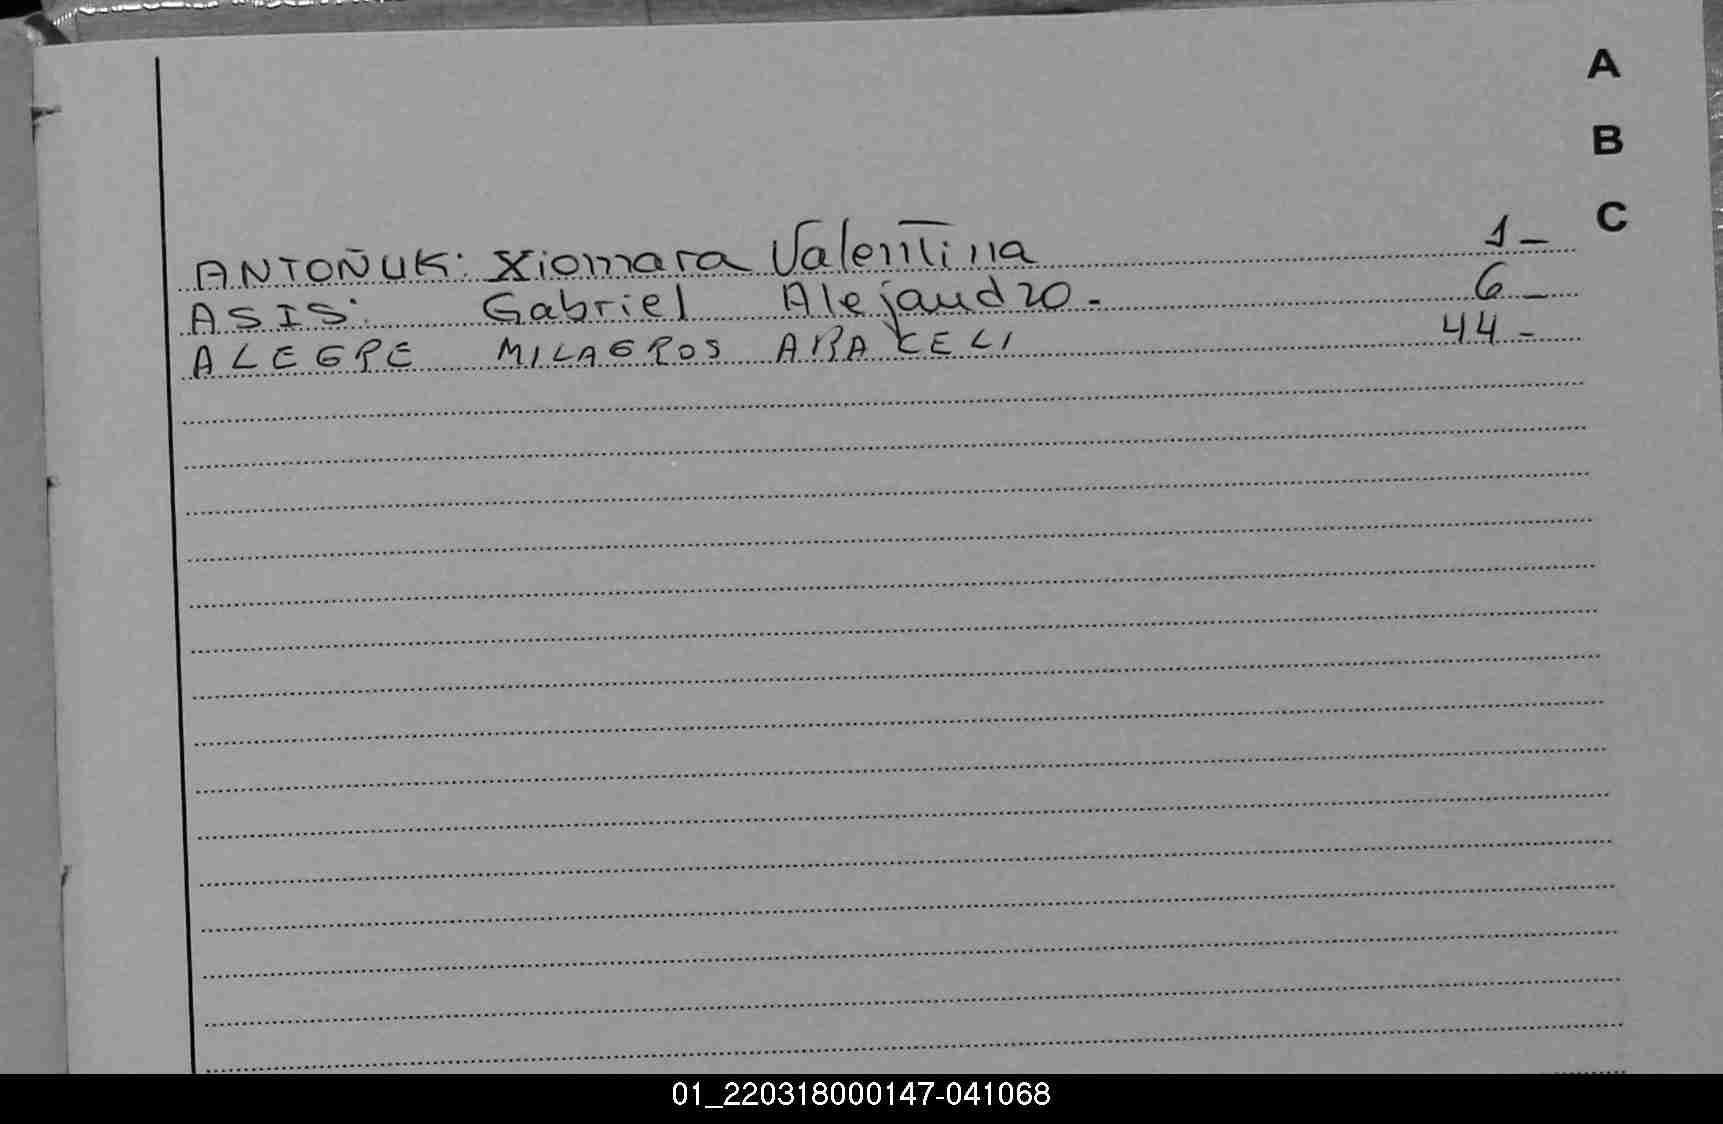 A
B
C
ANTOÑUK: Xiomara Valentina 1-
ASIS: Gabriel Alejandro- 6-
ALEGRE MILAGROS ARACELI 44-
01_220318000147-041068